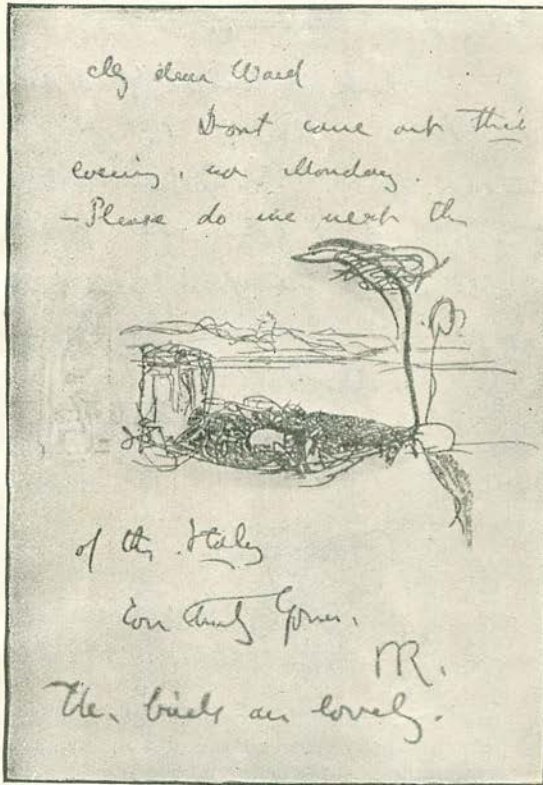 My dear Ward
Dont come out this
evening, nor Monday.
- Please do me next the
of the Italy
Ever truly Yours,
JR.
The birds are lovely.